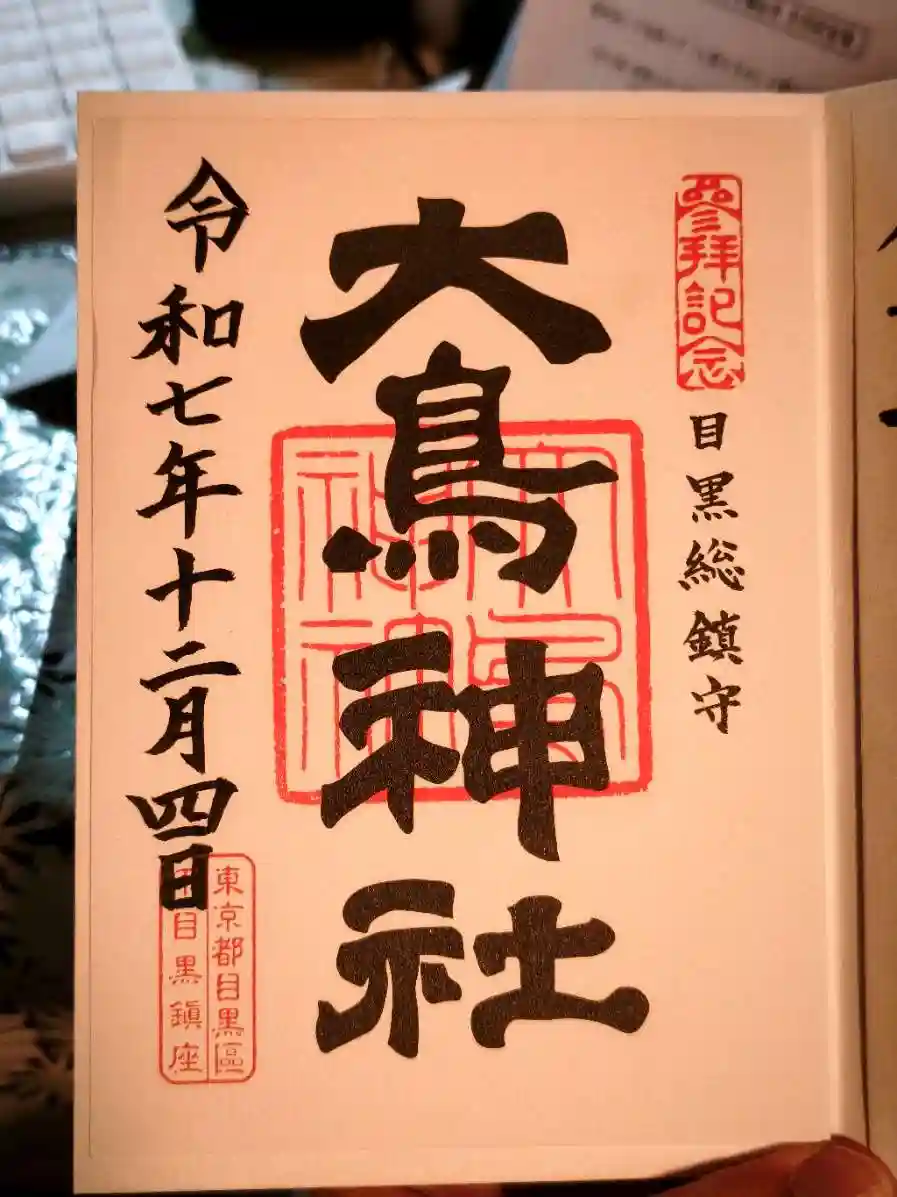 參拜記念
目黒総鎮守
大鳥神社
大鳥神社
令和七年十二月四日
東京都目黒區
下目黒鎮座